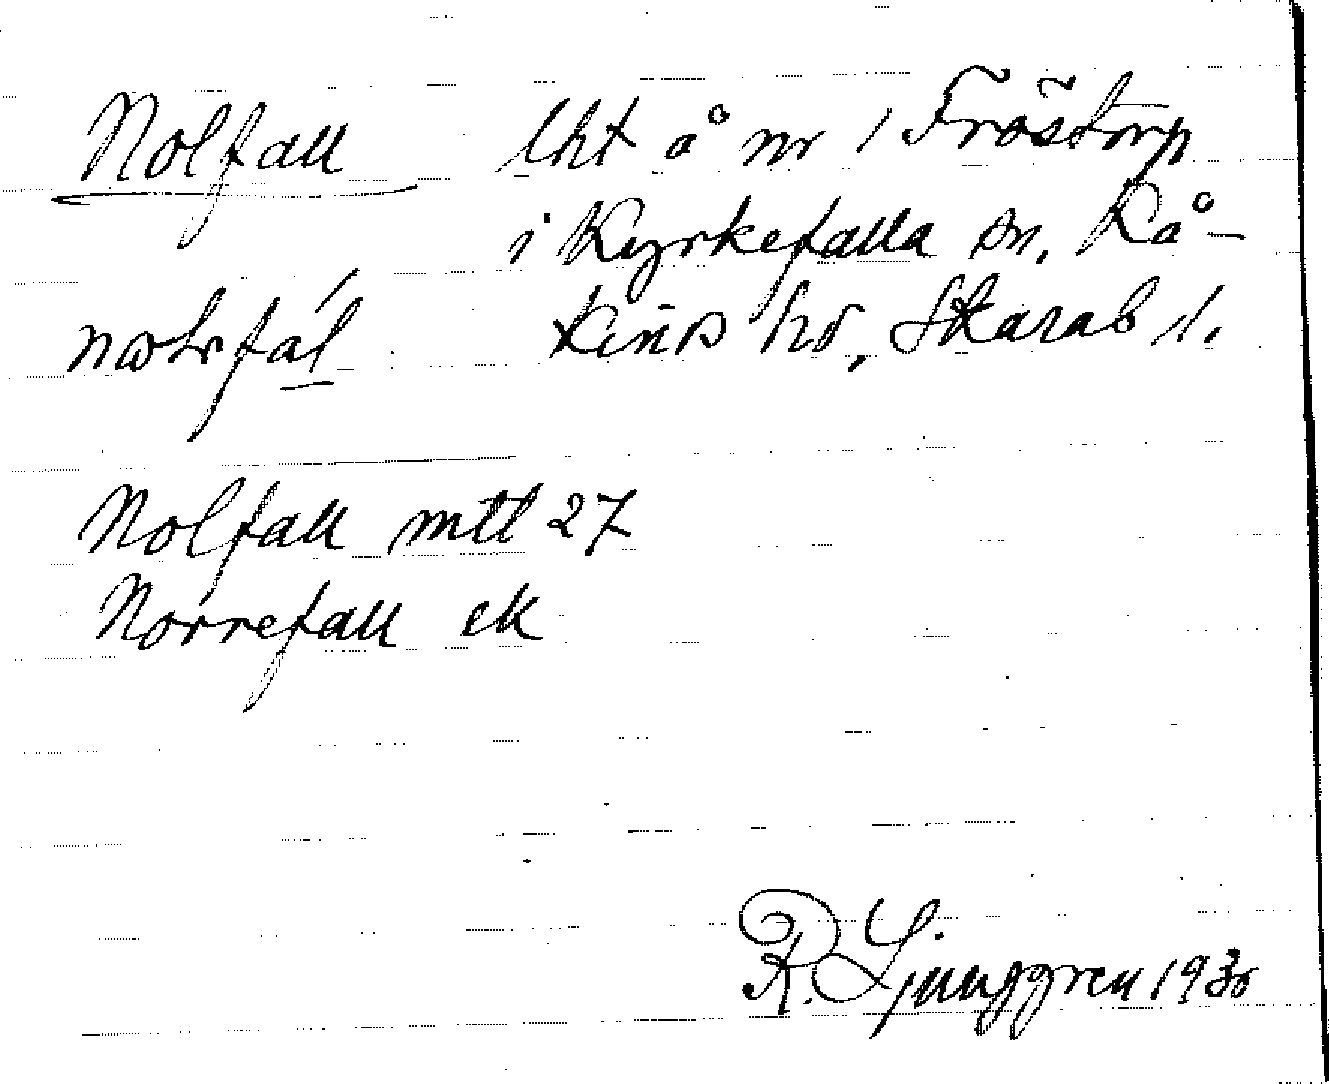 Nolfall lht å nr 1 Fröstorp
i Kyrkefalla sn, Kå-
kinds hd, Skarab. l.
Nolfall mtl 27
Norrefall ek
R. Ljunggren 1930